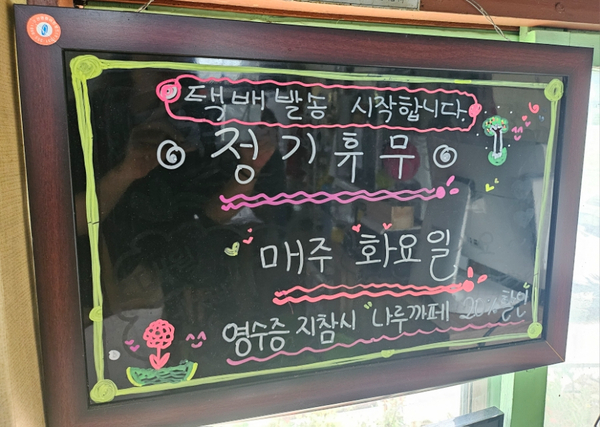 택배발송 시작합니다.
정기휴무
매주 화요일
영수증 지참시 "나루까페 20%할인